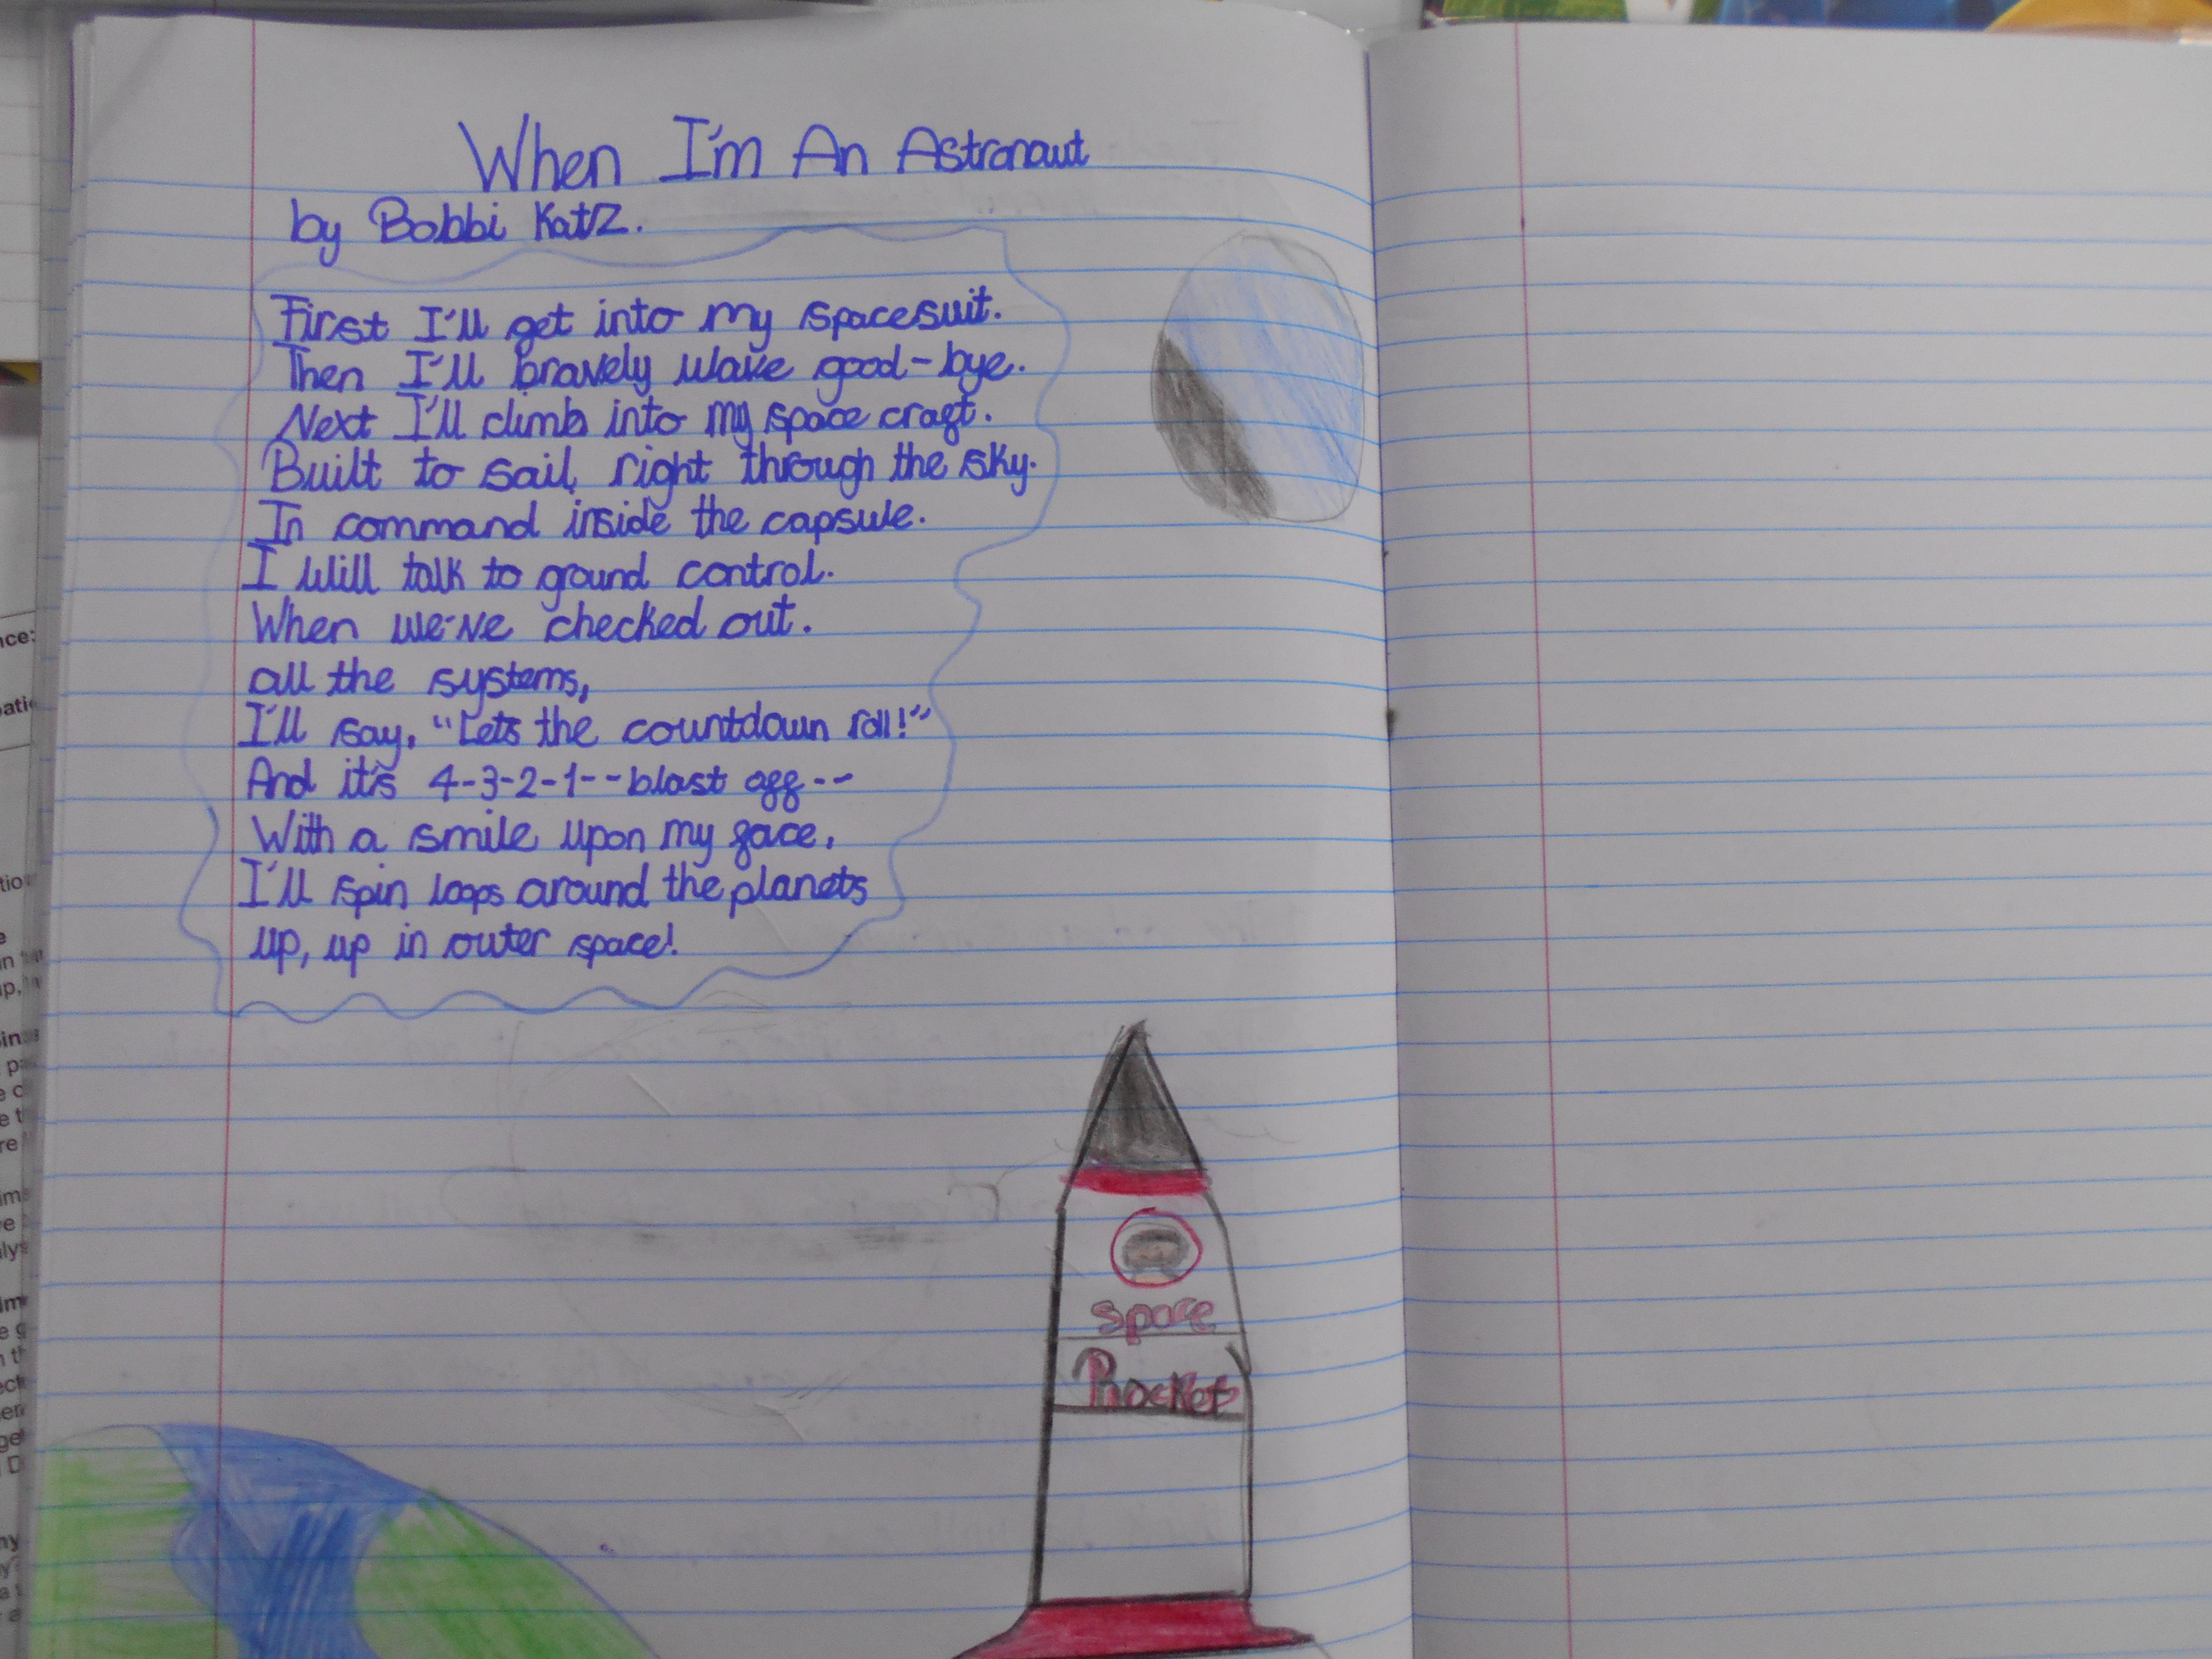 When I'm An Astronaut
by Bobbi Katz.
First I'll get into my spacesuit.
Then I'll bravely wave good-bye.
Next I'll climb into my space craft.
Built to sail right through the sky.
In command inside the capsule.
I will talk to ground control.
When we've checked out.
all the systems,
I'll say, "Lets the countdown roll!"
And it's 4-3-2-1--blast off--
With a smile upon my face,
I'll spin loops around the planets
up, up in outer space!
space
Rocket